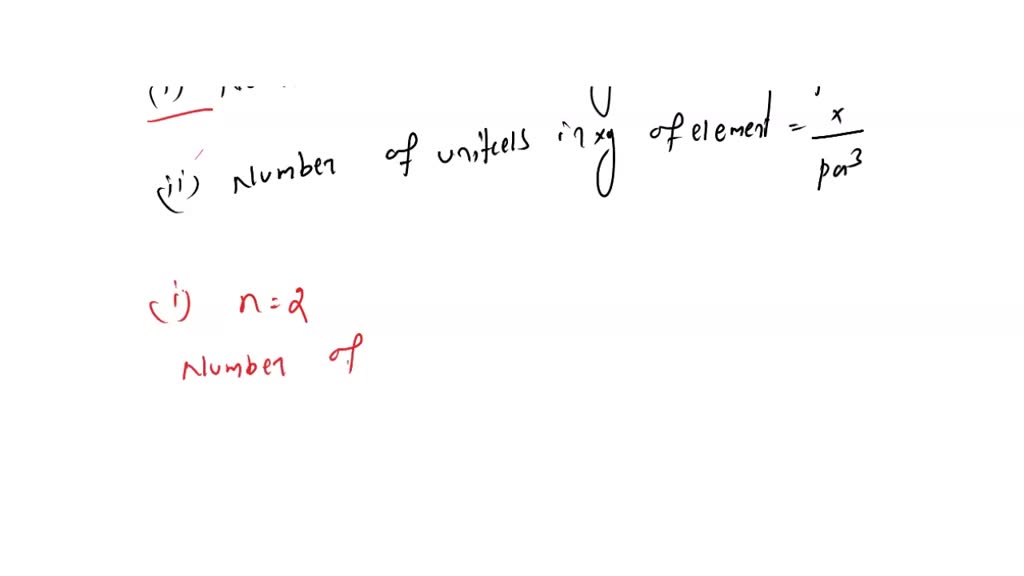 (ii) Number of unitcels in xg of element = x / ρa³
(i) n = 2
Number of